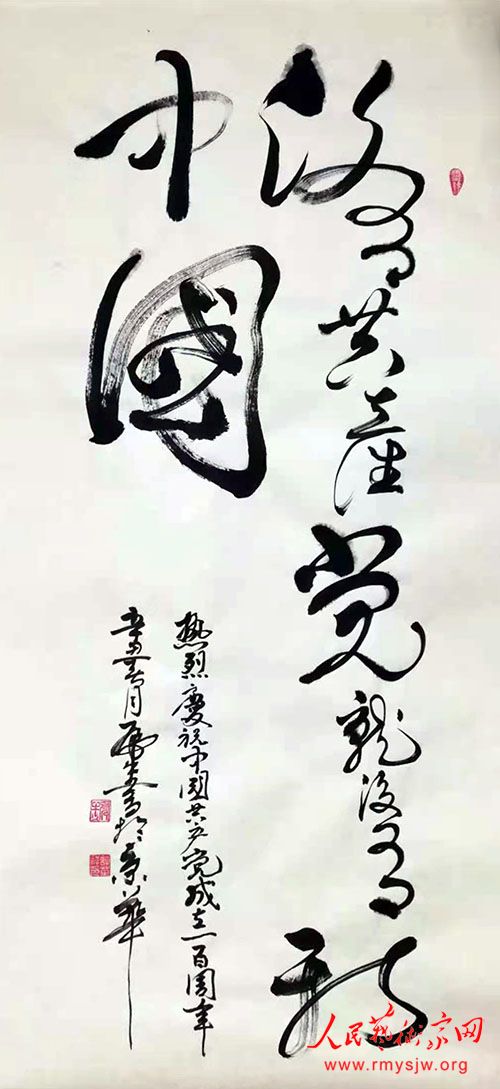 没有共产党就没有新
中國
热烈慶祝中國共产党成立一百周年
辛丑春月 書於京華
人民藝術家网
www.rmysjw.org